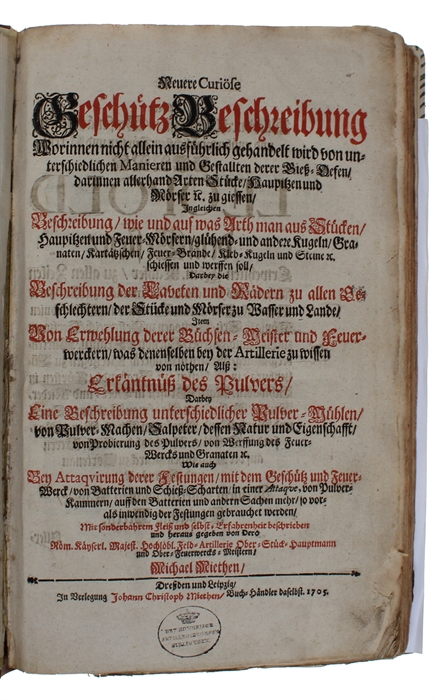 Neuere Curiöse
Geschütz Beschreibung
Worinnen nicht allein ausführlich gehandelt wird von un-
terschiedlichen Manieren und Gestallten derer Gieß-Oefen/
darinnen allerhand Arten Stücke/ Haupitzen und
Mörser ꝛc. zu giessen/
Ingleichen
Beschreibung/ wie und auf was Arth man aus Stücken/
Haupitzen und Feuer-Mörsern/ glühend- und andere Kugeln/ Gra-
naten/ Kartätschen/ Feuer-Brände/ Kleb-Kugeln und Steine ꝛc.
schiessen und werffen soll/
Darbey die
Beschreibung der Laveten und Rädern zu allen Ge-
schlechtern/ der Stücke und Mörser zu Wasser und Lande/
Item
Von Erwehlung derer Büchsen-Meister und Feuer-
werckern/ was denenselben bey der Artillerie zu wissen
von nöthen/ Alß:
Erkäntnüß des Pulvers/
Darbey
Eine Beschreibung unterschiedlicher Pulver-Mühlen/
von Pulver-Machen/ Salpeter/ dessen Natur und Eigenschafft/
von Probierung des Pulvers/ von Werffung des Feuer-
Wercks und Granaten ꝛc.
Wie auch
Bey Attaqvirung derer Festungen/ mit dem Geschütz und Feuer-
Werck/ von Batterien und Schieß-Scharten/ in einer Attaqve, von Pulver-
Kammern/ auff den Batterien und andern Sachen mehr/ so vor-
als inwendig der Festungen gebrauchet werden/
Mit sonderbahrem Fleiß und selbst-Erfahrenheit beschrieben
und heraus gegeben von Dero
Röm. Käyserl. Majest. Hochlöbl. Feld-Artillerie Ober-Stück-Hauptmann
und Ober-Feuerwercks-Meistern/
Michael Miethen/
Dreßden und Leipzig/
In Verlegung Johann Christoph Miethen/ Buch-Händler daselbst. 1705.